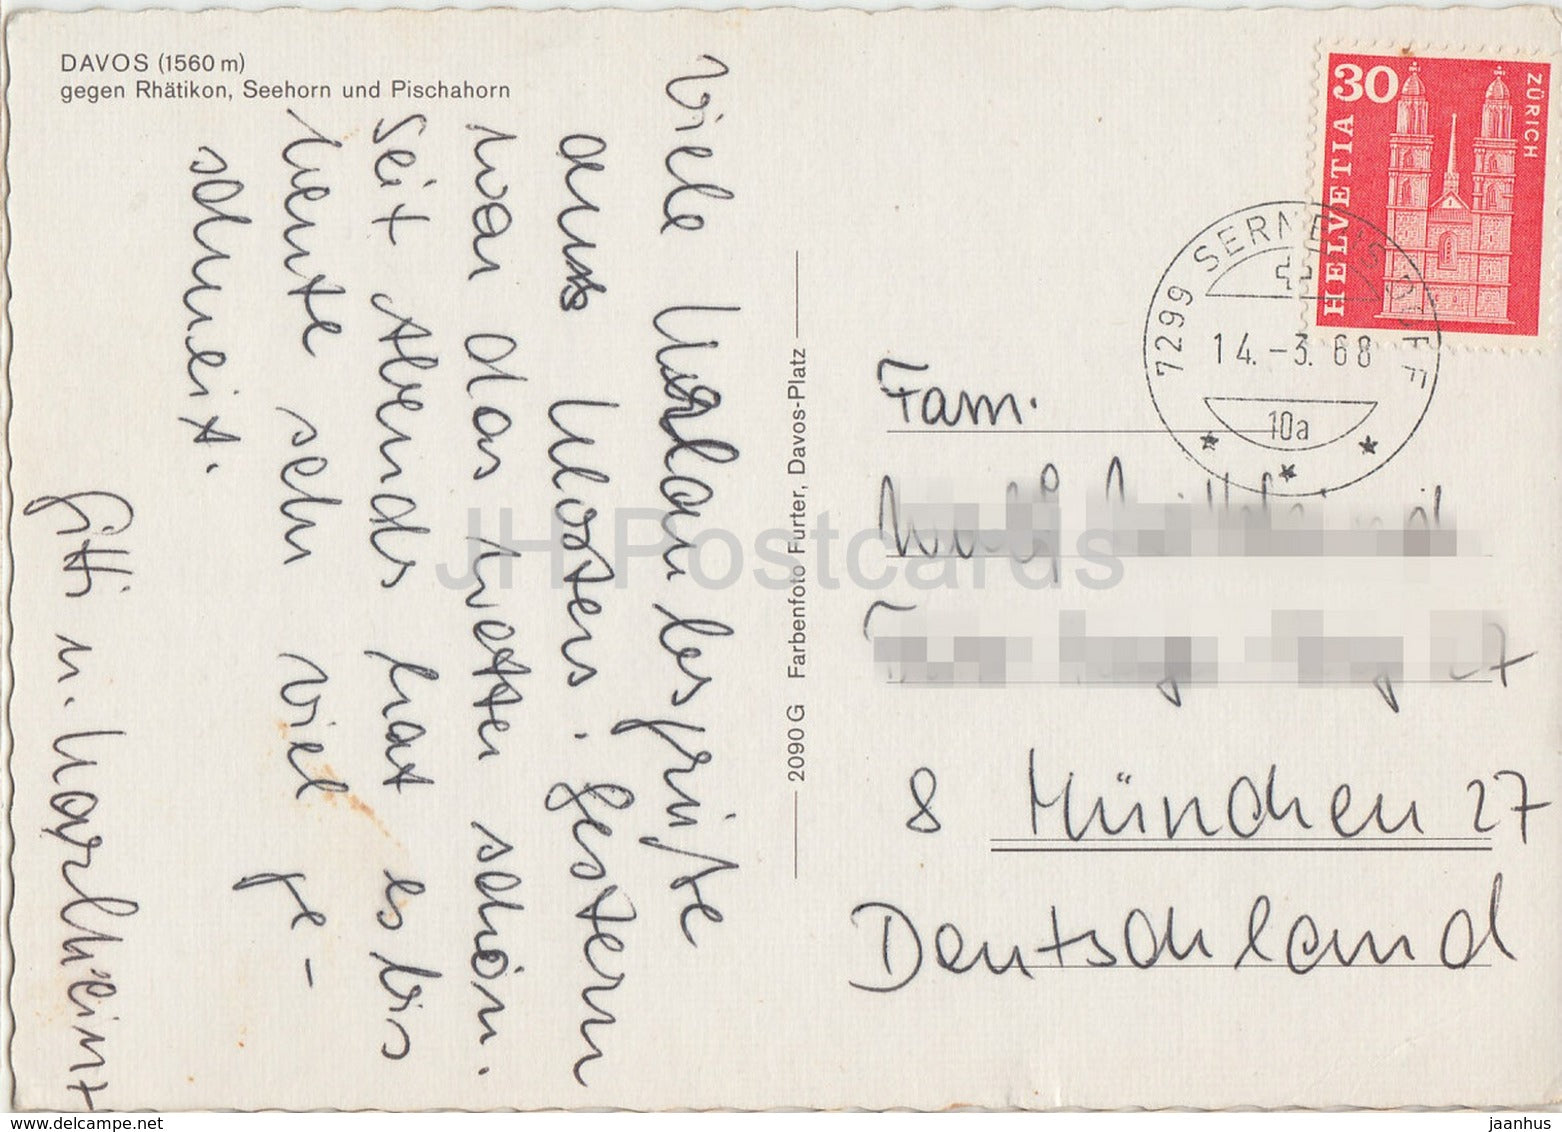 DAVOS (1560 m)
gegen Rhätikon, Seehorn und Pischahorn
Viele Urlaubsgrüße
aus Klosters. Gestern
war das Wetter schön.
Seit Abends hat es bis
heute sehr viel ge-
schneit.
Gitti u. Karlheinz
2090 G Farbenfoto Furter, Davos-Platz
HELVETIA
30
ZÜRICH
7299 SERNEUS DORF
14.-3.68
10a
Fam.
27
8 München 27
Deutschland
JH Postcards
www.delcampe.net
jaanhus